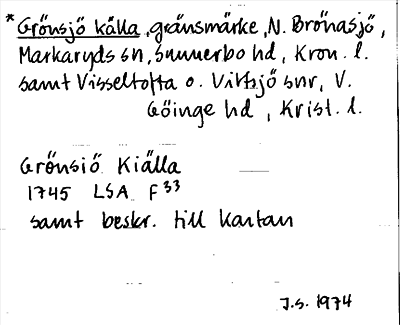 *Grönsjö källa, gränsmärke, N. Brönasjö,
Markaryds sn, Sunnerbo hd, Kron. l.
samt Visseltofta o. Vittsjö snr, V.
Göinge hd, Krist. l.
Grönsiö Kiälla
1745 LSA F33
samt beskr. till kartan
J.S. 1974